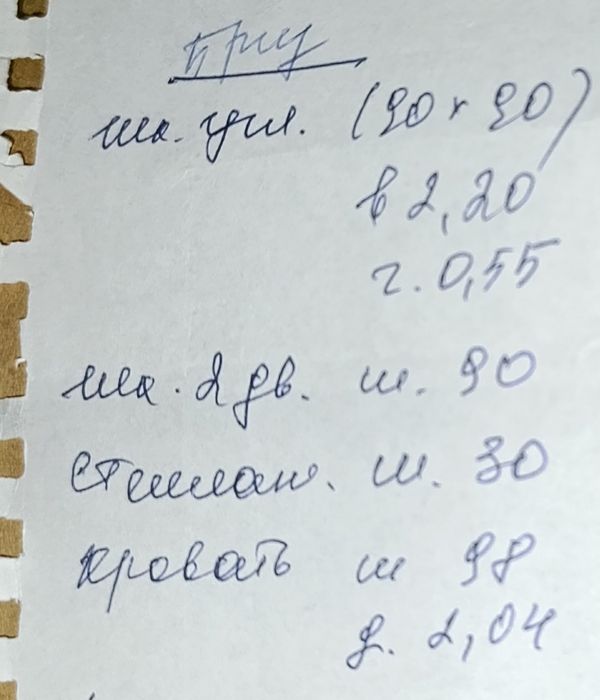 шк. угл. (90 х 90)
в 2,20
г. 0,55
шк. 2 дв. ш. 90
стеллаж. ш. 30
кровать ш 98
д. 2,04